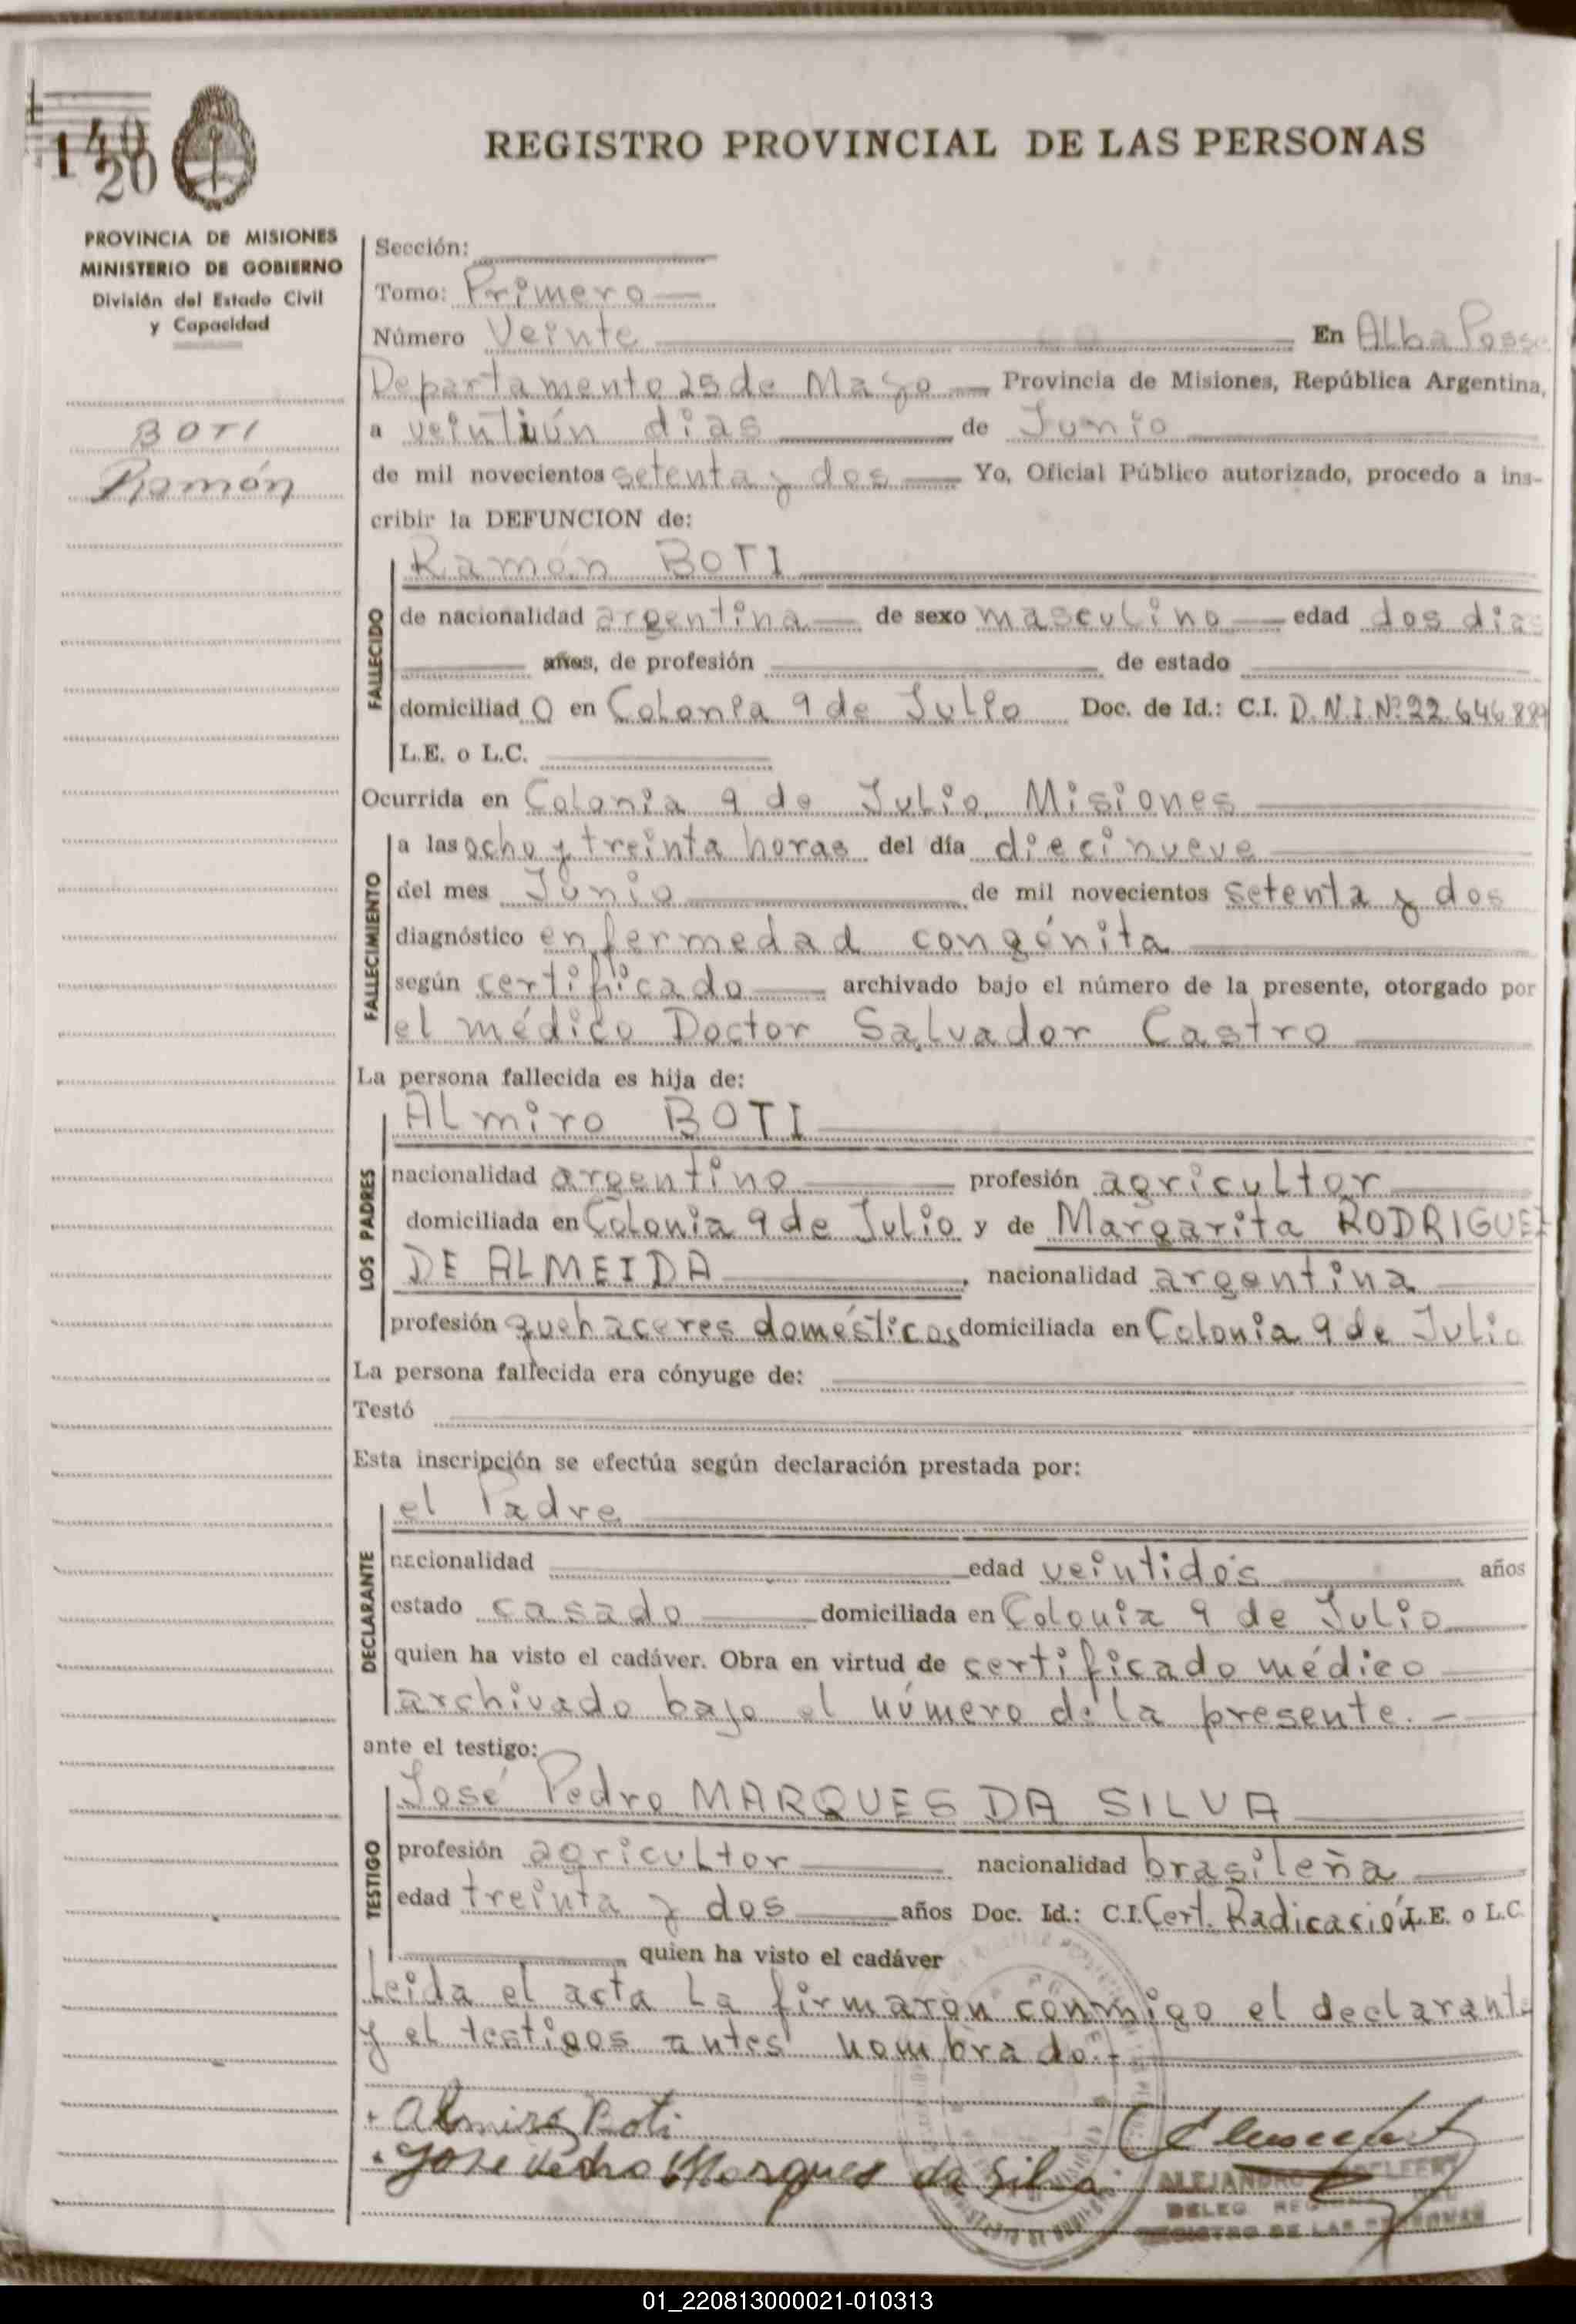 140
120
REGISTRO PROVINCIAL DE LAS PERSONAS
PROVINCIA DE MISIONES
MINISTERIO DE GOBIERNO
División del Estado Civil
y Capacidad
BOTI
Ramón
Sección:
Tomo: Primero
Número Veinte En Alba Posse
Departamento 25 de Mayo Provincia de Misiones, República Argentina,
a veintiún dias de Junio
de mil novecientos setenta y dos Yo, Oficial Público autorizado, procedo a ins-
cribir la DEFUNCION de:
FALLECIDO
Ramón BOTI
de nacionalidad argentina de sexo masculino edad dos dias
años, de profesión de estado
domiciliad o en Colonia 9 de Julio Doc. de Id.: C.I. D.N.I.Nº 22.646.884
L.E. o L.C.
Ocurrida en Colonia 9 de Julio, Misiones
FALLECIMIENTO
a las ocho y treinta horas del día diecinueve
del mes Junio de mil novecientos setenta y dos
diagnóstico enfermedad congénita
según certificado archivado bajo el número de la presente, otorgado por
el médico Doctor Salvador Castro
La persona fallecida es hija de:
LOS PADRES
Almiro BOTI
nacionalidad argentino profesión agricultor
domiciliada en Colonia 9 de Julio y de Margarita RODRIGUEZ
DE ALMEIDA, nacionalidad argentina
profesión quehaceres domésticos domiciliada en Colonia 9 de Julio
La persona fallecida era cónyuge de:
Testó
Esta inscripción se efectúa según declaración prestada por:
DECLARANTE
el Padre
nacionalidad edad veintidós años
estado casado domiciliada en Colonia 9 de Julio
quien ha visto el cadáver. Obra en virtud de certificado médico
archivado bajo el número de la presente.-
ante el testigo:
TESTIGO
José Pedro MARQUES DA SILVA
profesión agricultor nacionalidad brasileña
edad treinta y dos años Doc. Id.: C.I. Cert. Radicación L.E. o L.C.
quien ha visto el cadáver
Leida el acta la firmaron conmigo el declarante
y el testigos antes nombrado.-
Almiro Boti
Jose Pedro Marques da Silva
ALEJANDRO
DELEG
REGISTRO DE LAS PERSONAS
01_220813000021-010313